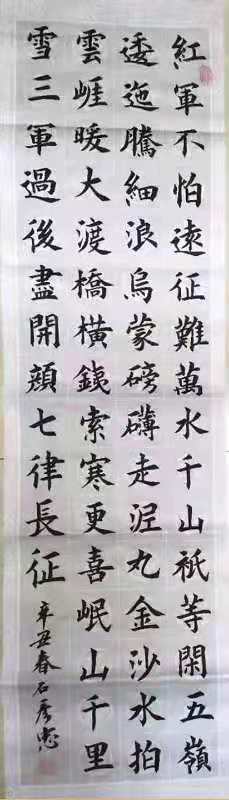 紅軍不怕遠征難萬水千山祇等閑五嶺
逶迤騰細浪烏蒙磅礴走泥丸金沙水拍
雲崕暖大渡橋橫鐵索寒更喜岷山千里
雪三軍過後盡開顔七律長征
辛丑春石彥忠